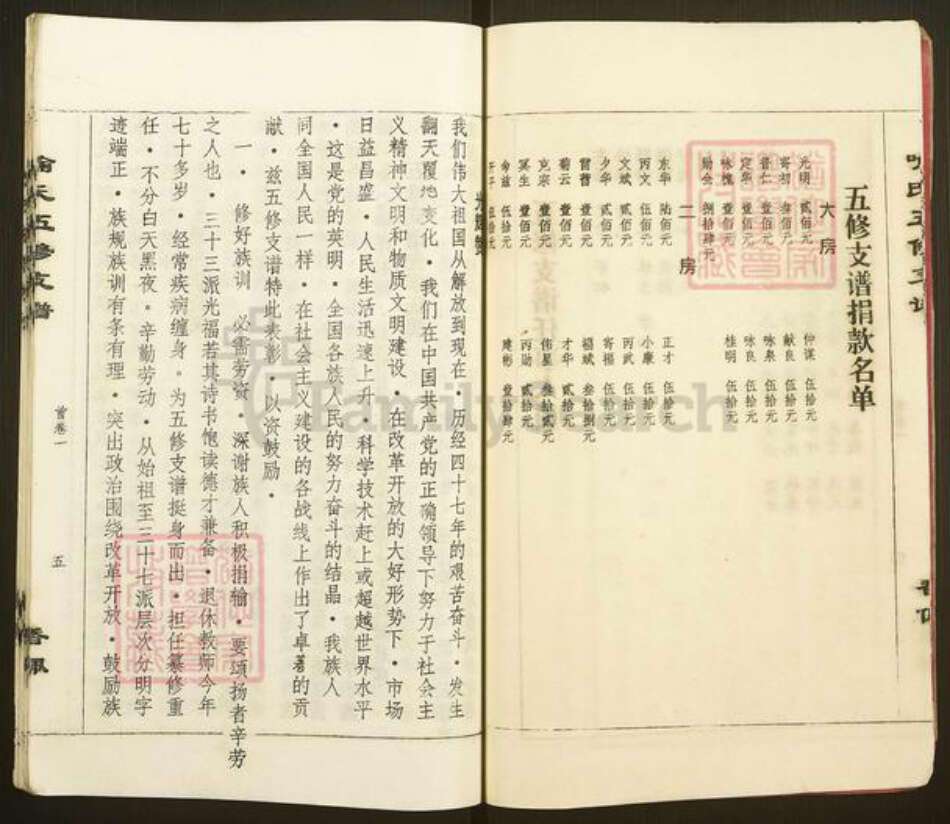 五修支谱捐款名单
大房
光明 贰佰元 仲谋 伍拾元
寄初 壹佰元 献良 伍拾元
晋仁 壹佰元 咏泉 伍拾元
定华 壹佰元 咏良 伍拾元
咏槐 壹佰元 桂明 伍拾元
勋全 捌拾肆元
二房
东华 陆佰元 正才 伍拾元
丙文 伍佰元 小康 伍拾元
文斌 贰佰元 丙武 伍拾元
夕华 贰佰元 寄福 伍拾元
雷普 壹佰元 福斌 叁拾捌元
菊云 壹佰元 才华 贰拾元
克宗 壹佰元 伟星 叁拾贰元
冥生 壹佰元 丙勋 贰拾元
命兹 伍拾元 建彬 壹拾肆元
伍拾元
喻氏五修支谱
首卷一
五
我们伟大祖国从解放到现在·历经四十七年的艰苦奋斗·发生
翻天覆地变化·我们在中国共产党的正确领导下努力于社会主
义精神文明和物质文明建设·在改革开放的大好形势下·市场
日益昌盛·人民生活迅速上升·科学技术赶上或超越世界水平
·这是党的英明·全国各族人民的努力奋斗的结晶·我族人
同全国人民一样·在社会主义建设的各战线上作出了卓著的贡
献·兹五修支谱特此表彰·以资鼓励·
一·修好族训 必需劳资·深谢族人积极捐输·要颂扬者辛劳
之人也·三十三派光福若其诗书饱读德才兼备·退休教师今年
七十多岁·经常疾病缠身。为五修支谱挺身而出·担任纂修重
任·不分白天黑夜。辛勤劳动·从始祖至三十七派层次分明字
迹端正·族规族训有条有理·突出政治围绕改革开放·鼓励族
FamilySearch